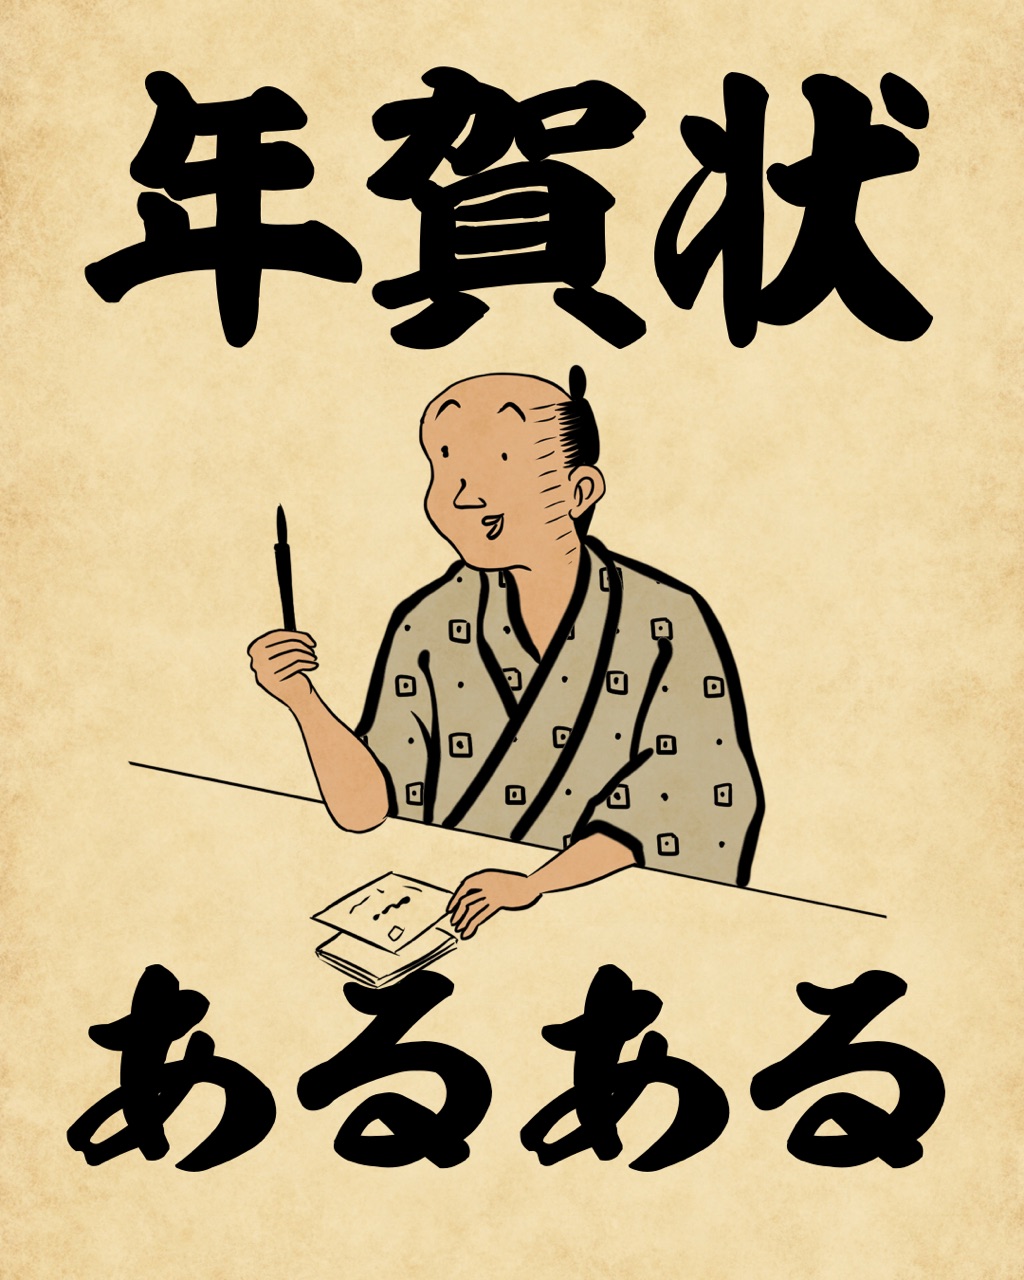 年賀状
あるある